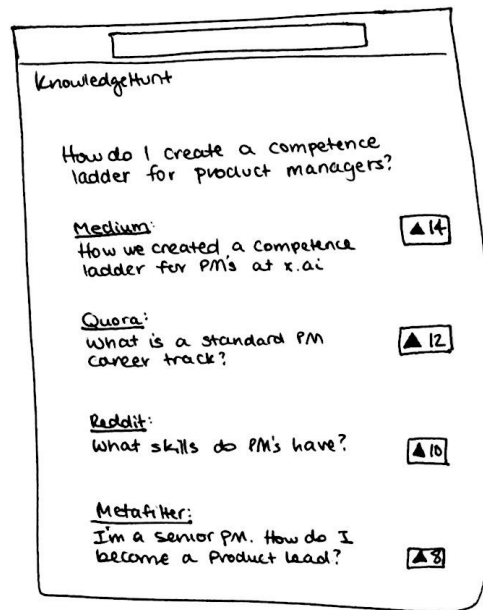 KnowledgeHunt
How do I create a competence
ladder for product managers?
Medium:
▲14
How we created a competence
ladder for PM's at x.ai
Quora:
What is a standard PM
career track?
▲12
Reddit:
What skills do PM's have?
▲10
Metafilter:
I'm a senior PM. How do I
become a Product Lead?
▲8